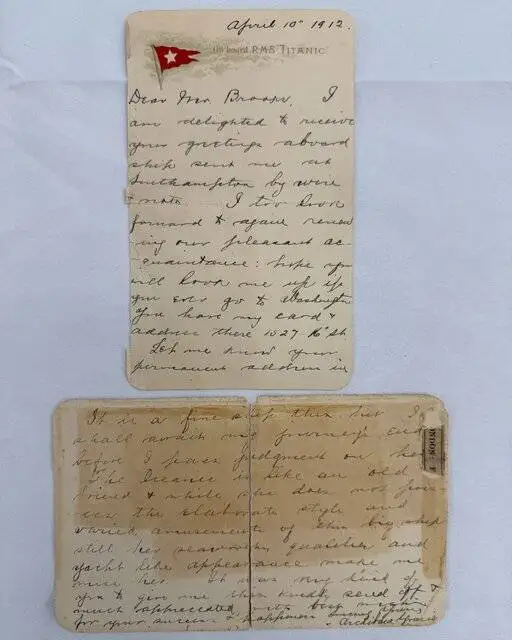 April 10th 1912.
On board R.M.S. "TITANIC"
Dear Mr. I
am delighted to receive
your greetings aboard
ship sent me at
Southampton by wire
& note. I too look
forward to again renew
ing our pleasant ac-
quaintance: hope you
will look me up if
you ever go to Washington
You have my card &
address there 1527-16th St.
Let me know your
permanent address in
It is a fine ship this but I
shall await my journeys end
before I pass judgment on her
The Oceanic is like an old
friend & while she does not poss-
ess the elaborate style and
varied amusements of this big ship
still her seaworthy qualities and
yacht like appearance make me
miss her It was very kind of
you to give me this kindly send off &
much appreciated with best
for your success & happiness
Archibald Gracie